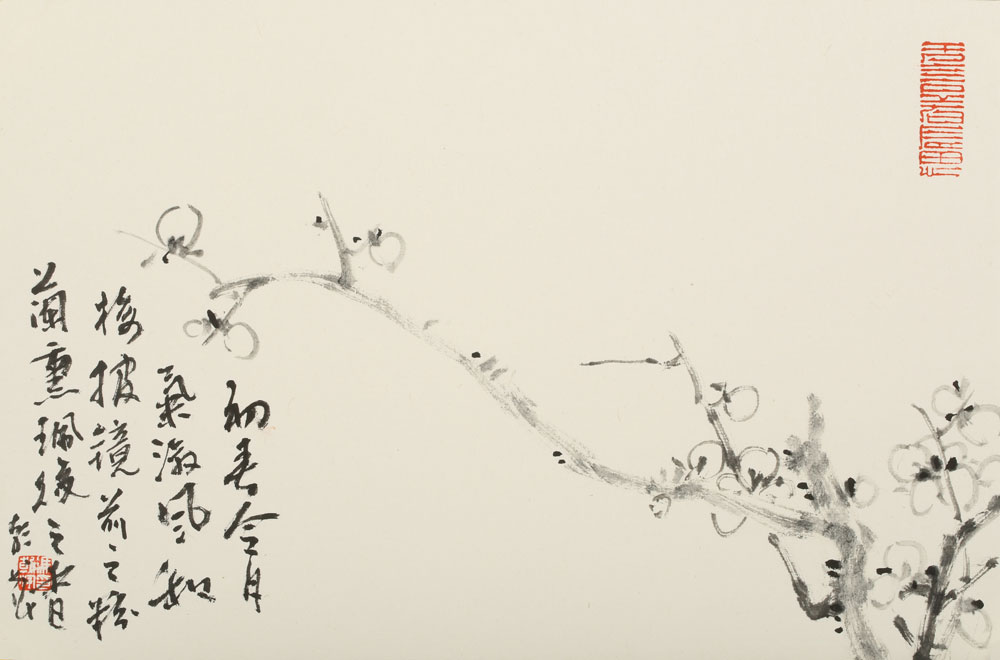 初春令月
氣淑風和
梅披鏡前之粉
蘭熏珮後之香